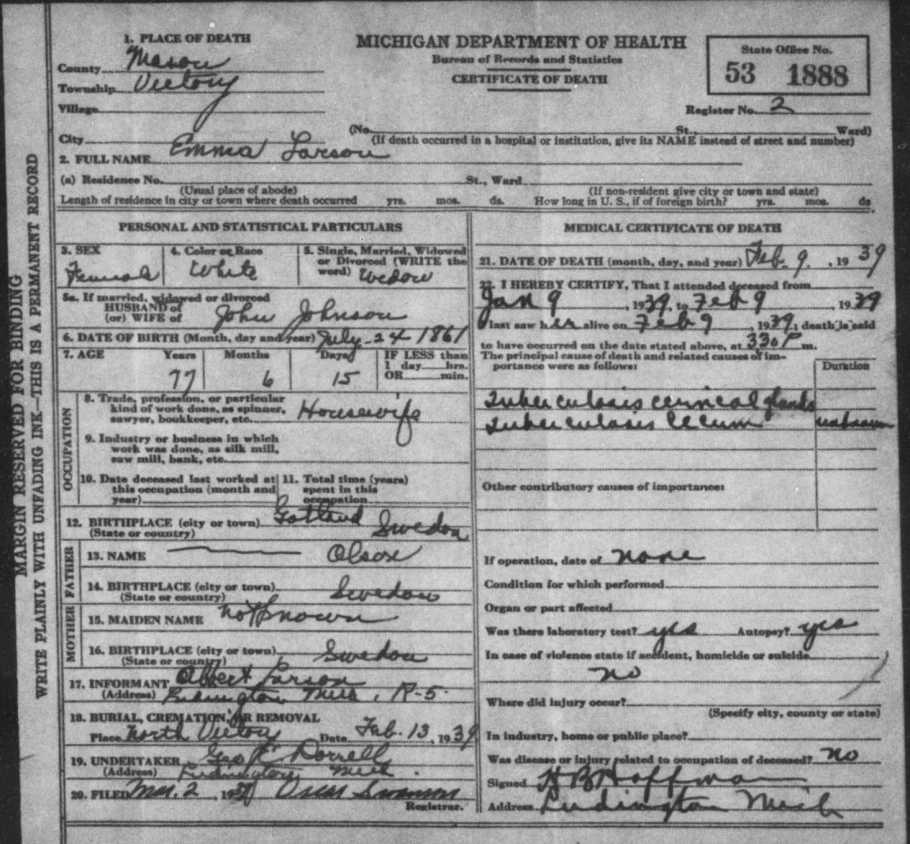 1. PLACE OF DEATH
County Mason
Township Victory
Village
City
MICHIGAN DEPARTMENT OF HEALTH
Bureau of Records and Statistics
CERTIFICATE OF DEATH
State Office No.
53 1888
Register No. 2
(No. St., Ward)
(If death occurred in a hospital or institution, give its NAME instead of street and number)
2. FULL NAME Emma Larson
(a) Residence No. St., Ward
(Usual place of abode) (If non-resident give city or town and state)
Length of residence in city or town where death occurred yrs. mos. ds. How long in U. S., if of foreign birth? yrs. mos. ds
MARGIN RESERVED FOR BINDING
WRITE PLAINLY WITH UNFADING INK—THIS IS A PERMANENT RECORD
PERSONAL AND STATISTICAL PARTICULARS
3. SEX
Female
4. Color or Race
White
5. Single, Married, Widowed
or Divorced (WRITE the
word) Widow
5a. If married, widowed or divorced
HUSBAND of
(or) WIFE of John Johnson
6. DATE OF BIRTH (Month, day and year) July - 24 1861
7. AGE Years Months Days IF LESS than
1 day hrs.
OR min.
77 6 15
OCCUPATION
8. Trade, profession, or particular
kind of work done, as spinner,
sawyer, bookkeeper, etc. Housewife
9. Industry or business in which
work was done, as silk mill,
saw mill, bank, etc.
10. Date deceased last worked at
this occupation (month and
year)
11. Total time (years)
spent in this
occupation
12. BIRTHPLACE (city or town) Gotland Sweden
(State or country)
FATHER
13. NAME Olson
14. BIRTHPLACE (city or town) Sweden
(State or country)
MOTHER
15. MAIDEN NAME not known
16. BIRTHPLACE (city or town) Sweden
(State or country)
17. INFORMANT Albert Larson
(Address) Ludington Mich, R-5-
18. BURIAL, CREMATION, OR REMOVAL
Place North Victory Date Feb. 13, 1939
19. UNDERTAKER Geo R Dorrell
(Address) Ludington Mich.
20. FILED Mar. 2, 1939 Oscar Swanson
Registrar.
MEDICAL CERTIFICATE OF DEATH
21. DATE OF DEATH (month, day, and year) Feb. 9, 1939
22. I HEREBY CERTIFY, That I attended deceased from
Jan 9 1939, to Feb 9, 1939
I last saw her alive on Feb 9, 1939; death is said
to have occurred on the date stated above, at 330P m.
The principal cause of death and related causes of im-
portance were as follows: Duration
Tuberculosis cervical glands
Tuberculosis Cecum unknown
Other contributory causes of importance:
If operation, date of none
Condition for which performed
Organ or part affected
Was there laboratory test? yes Autopsy? yes
In case of violence state if accident, homicide or suicide
no
Where did injury occur?
(Specify city, county or state)
In industry, home or public place?
Was disease or injury related to occupation of deceased? no
Signed H B Hoffman
Address Ludington Mich